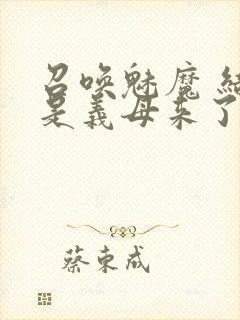 召唤魅魔 结
是義母来了
蔡東成